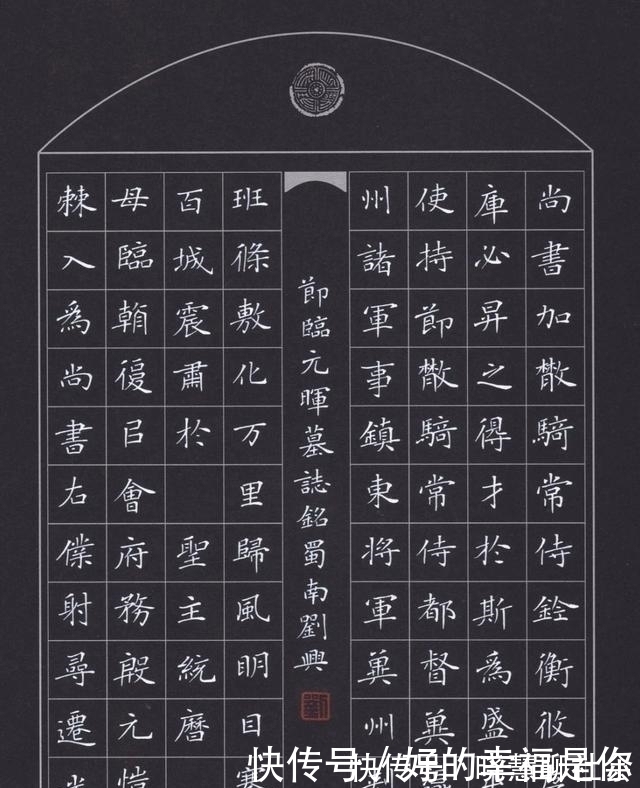 尚書加散騎常侍銓衡攸
庫必昇之得才於斯為盛
使持節散騎常侍都督冀
州諸軍事鎮東將軍冀州刺
節臨元暉墓誌銘蜀南劉興
劉
班條敷化万里歸風明目
百城震肅於 聖主統曆
母臨朝復㠯會府務殷元愷
棘入為尚書右僕射尋遷
快传号 / 好的幸福是你
快传号